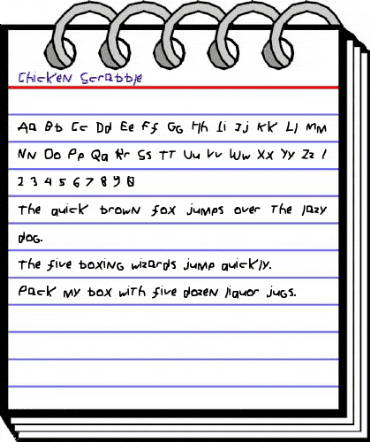 Chicken Scrabble
Aa Bb Cc Dd Ee Ff Gg Hh Ii Jj Kk Ll Mm
Nn Oo Pp Qq Rr Ss Tt Uu Vv Ww Xx Yy Zz 1
2 3 4 5 6 7 8 9 0
The quick brown fox jumps over the lazy
dog.
The five boxing wizards jump quickly.
Pack my box with five dozen liquor jugs.